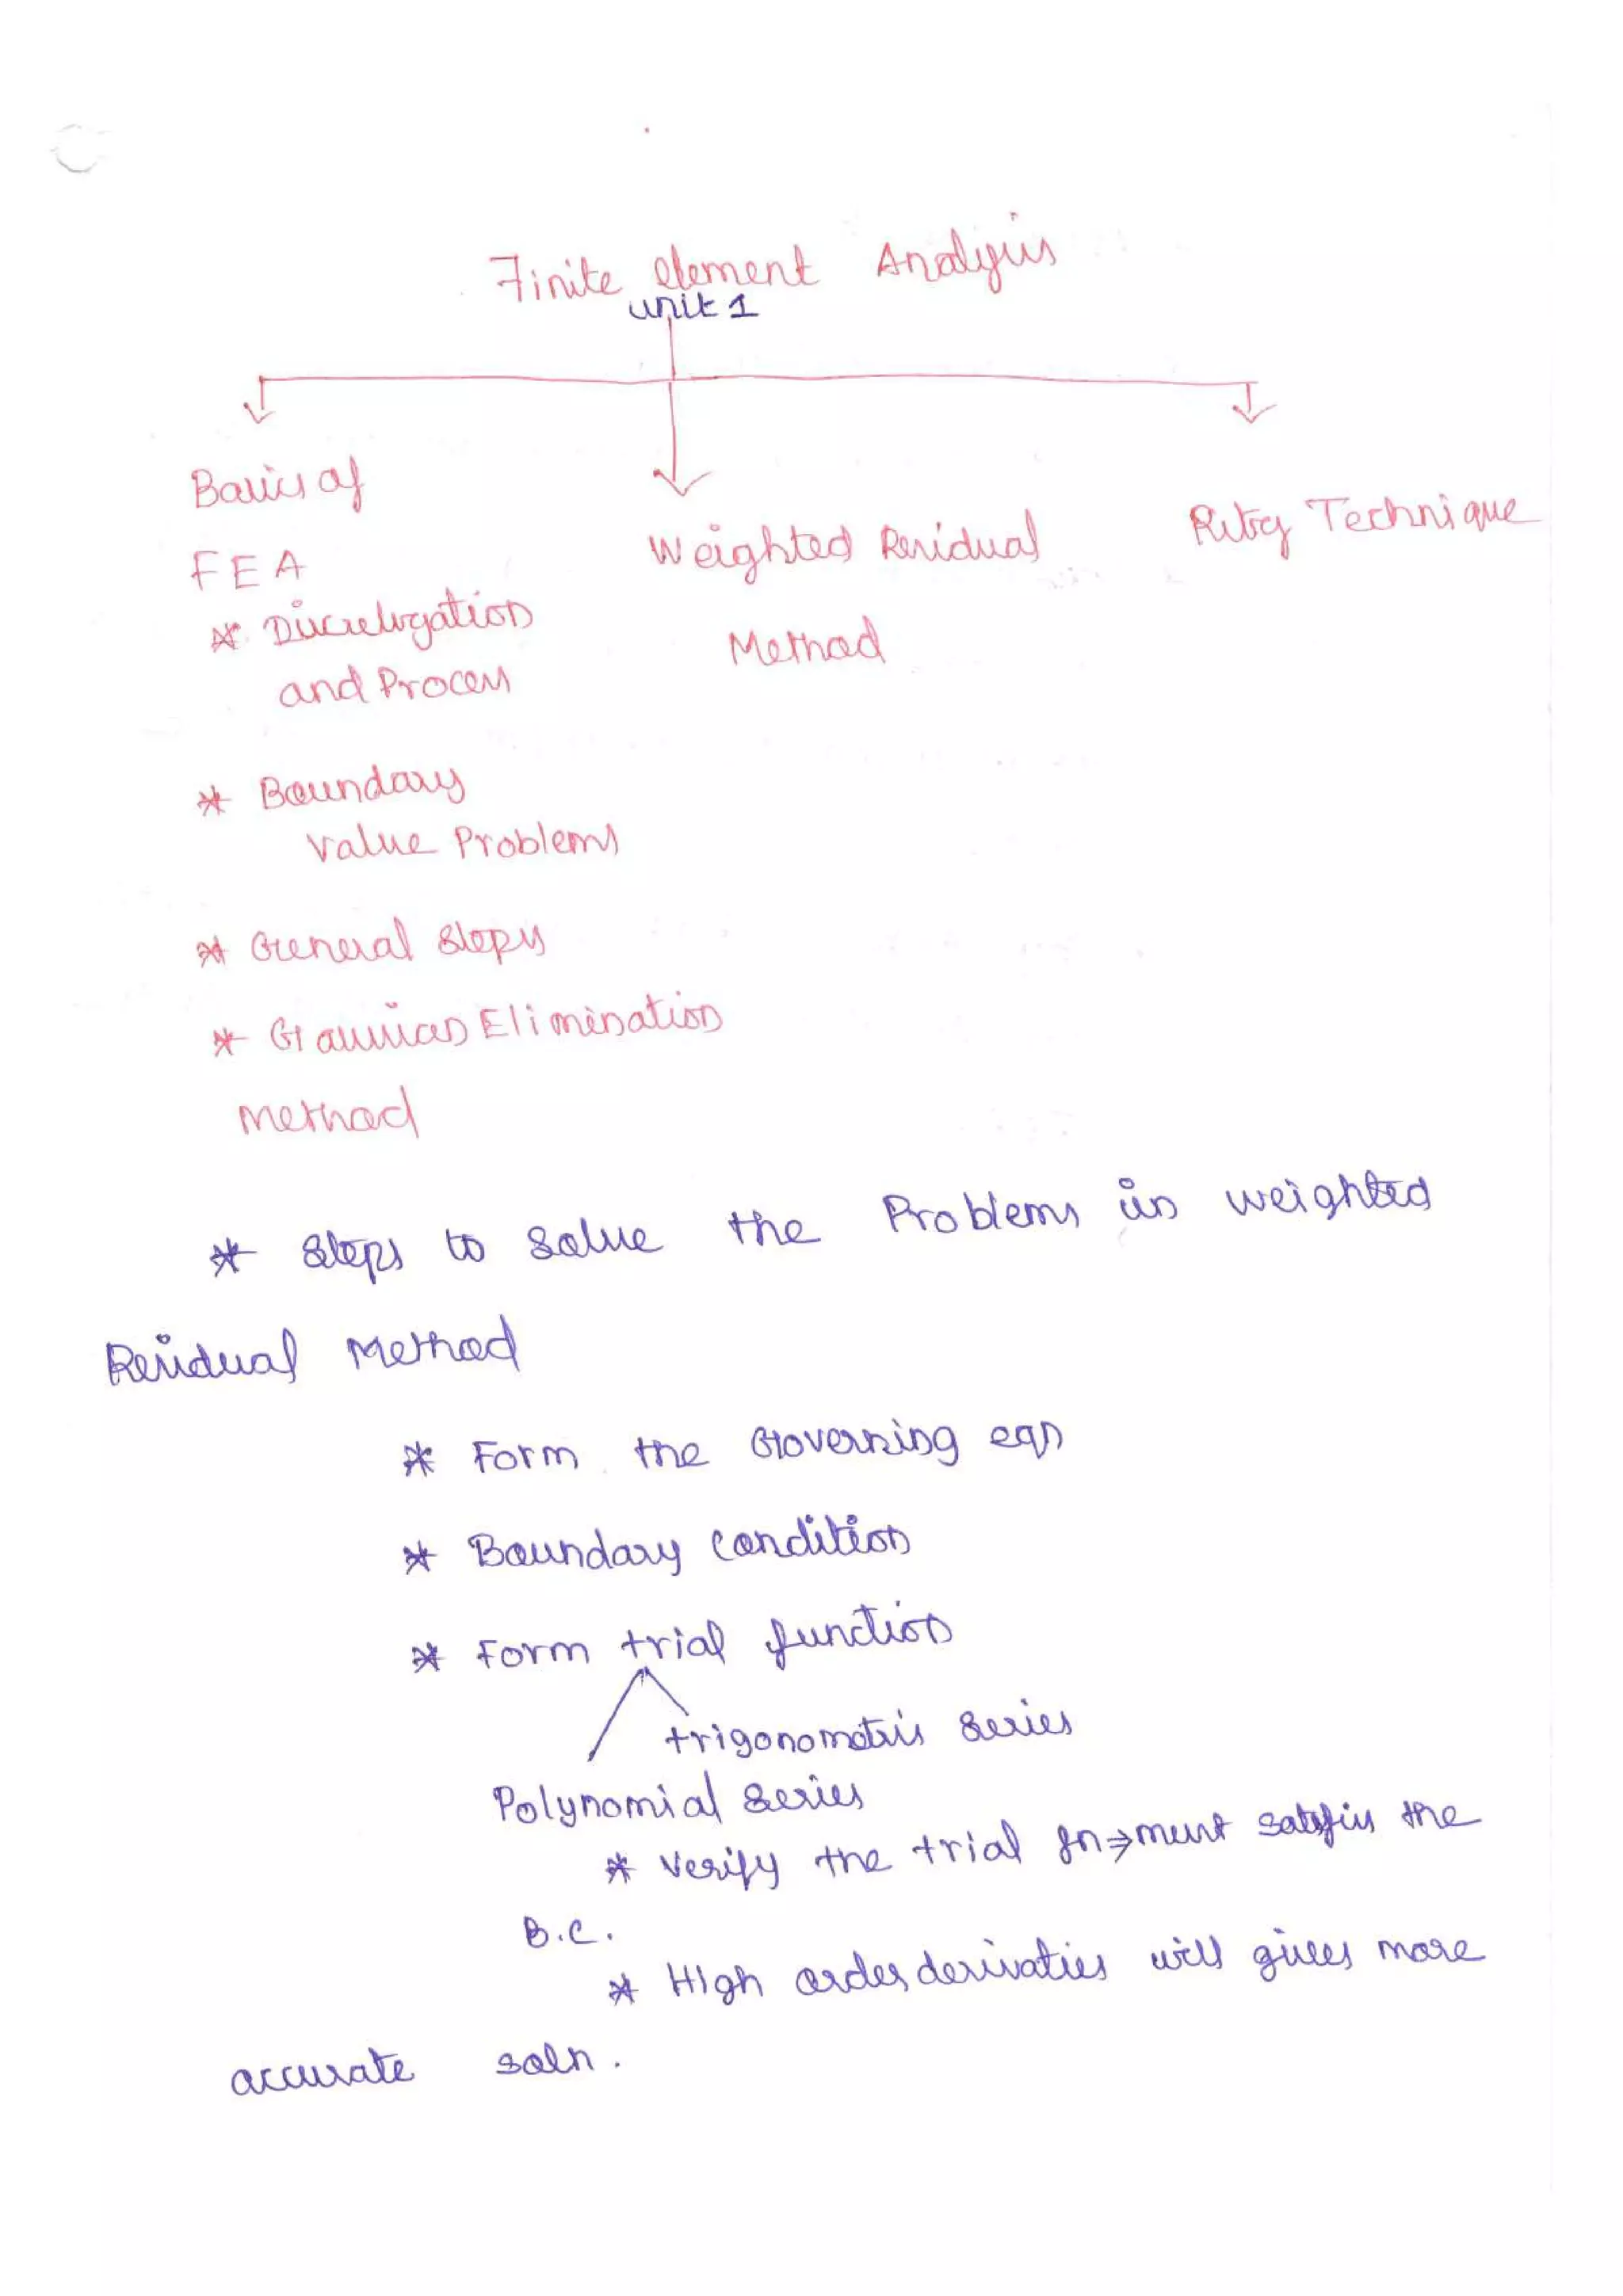 Finite element Analysis
unit 1
Basics of
FEA
* Discretization
and Process
* Boundary
value Problems
* General steps
* Gaussian Elimination
method
Weighted Residual
Method
Ritz Technique
* steps to solve the Problems in weighted
Residual Method
* Form the Governing eqn
* Boundary condition
* Form trial function
trigonometric series
Polynomial series
* Verify the trial fn → must satisfies the
B.C.
* High order derivaties will gives more
accurate soln.